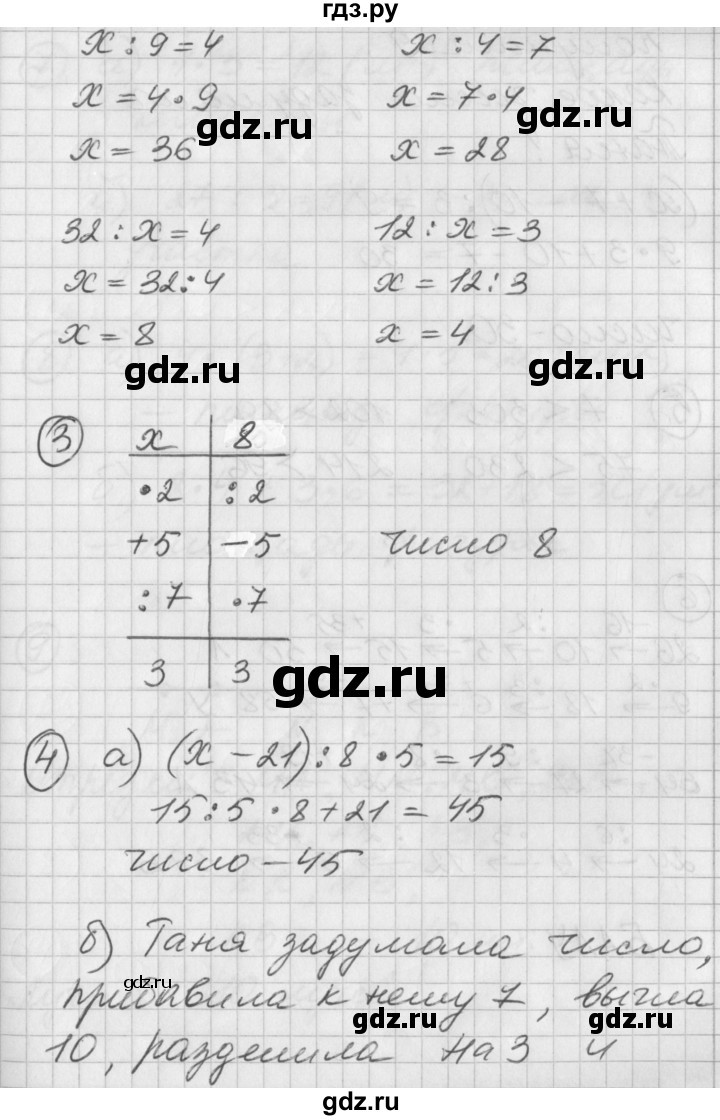 гдз.ру
x : 9 = 4    x : 4 = 7
x = 4 · 9    x = 7 · 4
gdz.ru    gdz.ru
x = 36    x = 28
32 : x = 4    12 : x = 3
x = 32 : 4    x = 12 : 3
x = 8    x = 4
gdz.ru    gdz.ru
③ x | 8
· 2 | : 2
+5 | − 5    число 8
: 7 | · 7
3 | 3
gdz.ru
④ а) (x − 21) : 8 · 5 = 15
15 : 5 · 8 + 21 = 45
число − 45
б) Таня задумала число,
gdz.ru
прибавила к нему 7, вычла
gdz.ru    gdz.ru
10, разделила на 3 и
gdz.ru